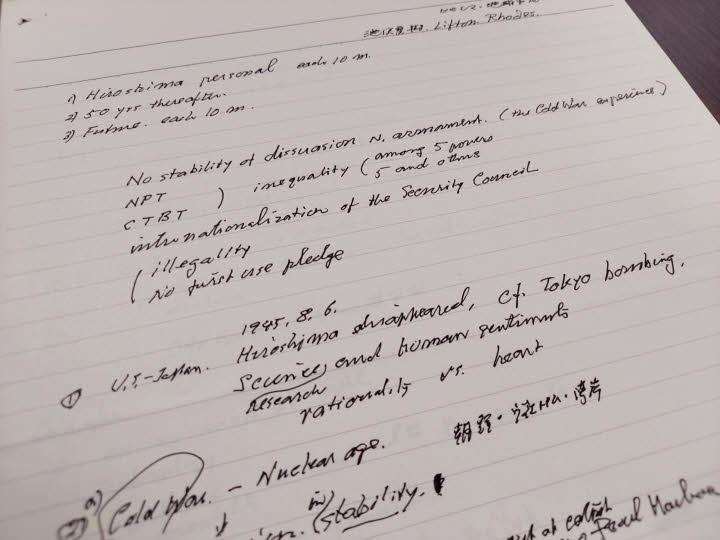 Lifton Rhodes.
1) Hiroshima personal each 10 m.
2) 50 yrs thereafter.
3) Future. each 10 m.
No stability of dissuasion N. armament. (the Cold War experience)
NPT
CTBT ) inequality ( among 5 powers
5 and others
internationalization of the Security Council
( illegality
No first use pledge
1945. 8. 6.
① U.S.-Japan. Hiroshima disappeared, cf. Tokyo bombing.
Science, and human sentiments
research
rationality vs. heart
Cold War. - Nuclear age.
stability.